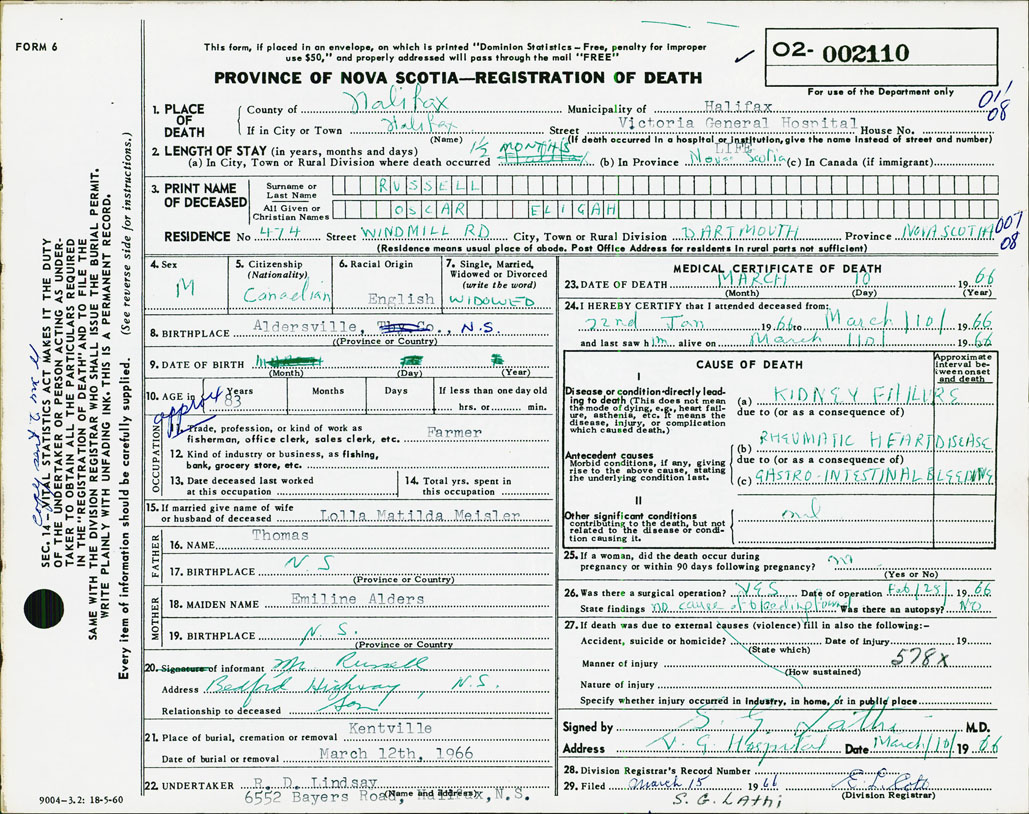 FORM 6
This form, if placed in an envelope, on which is printed "Dominion Statistics – Free, penalty for improper
use $50," and properly addressed will pass through the mail "FREE"
✓
O2- 002110
For use of the Department only
PROVINCE OF NOVA SCOTIA—REGISTRATION OF DEATH
01/08
1. PLACE OF DEATH
County of Halifax Municipality of Halifax
If in City or Town Halifax Street Victoria General Hospital House No.
(Name) (If death occurred in a hospital or institution, give the name instead of street and number)
2. LENGTH OF STAY (in years, months and days) 1½ MONTHS LIFE
(a) In City, Town or Rural Division where death occurred (b) In Province Nova Scotia (c) In Canada (if immigrant)
3. PRINT NAME OF DECEASED
Surname or Last Name RUSSELL
All Given or Christian Names OSCAR ELIGAH
RESIDENCE No 474 Street WINDMILL RD City, Town or Rural Division DARTMOUTH Province NOVA SCOTIA
007/08
(Residence means usual place of abode. Post Office Address for residents in rural parts not sufficient)
4. Sex M
5. Citizenship (Nationality) Canadian
6. Racial Origin English
7. Single, Married, Widowed or Divorced (write the word) WIDOWED
8. BIRTHPLACE Aldersville, , N.S.
(Province or Country)
9. DATE OF BIRTH
(Month) (Day) (Year)
10. AGE in approx Years 83 Months Days If less than one day old
hrs. or min.
OCCUPATION
11. Trade, profession, or kind of work as
fisherman, office clerk, sales clerk, etc. Farmer
12. Kind of industry or business, as fishing,
bank, grocery store, etc.
13. Date deceased last worked
at this occupation
14. Total yrs. spent in
this occupation
15. If married give name of wife
or husband of deceased Lolla Matilda Meisler
FATHER
16. NAME Thomas
17. BIRTHPLACE N S
(Province or Country)
MOTHER
18. MAIDEN NAME Emiline Alders
19. BIRTHPLACE N. S.
(Province or Country
20. Signature of informant Mr Russell
Address Bedford Highway, N.S.
Relationship to deceased Son
21. Place of burial, cremation or removal Kentville
Date of burial or removal March 12th, 1966
22. UNDERTAKER R. D. Lindsay
(Name and address)
6552 Bayers Road, Halifax, N.S.
9004–3.2: 18-5-60
MEDICAL CERTIFICATE OF DEATH
23. DATE OF DEATH MARCH 10 1966
(Month) (Day) (Year)
24. I HEREBY CERTIFY that I attended deceased from:
22nd Jan 1966 to March/10/ 1966
and last saw him alive on March 10/ 1966
CAUSE OF DEATH
Approximate interval between onset and death
I
Disease or condition directly leading to death (This does not mean the mode of dying, e.g., heart failure, asthenia, etc. It means the disease, injury, or complication which caused death.)
(a) KIDNEY FAILURE
due to (or as a consequence of)
Antecedent causes
Morbid conditions, if any, giving rise to the above cause, stating the underlying condition last.
(b) RHEUMATIC HEART DISEASE
due to (or as a consequence of)
(c) GASTRO-INTESTINAL BLEEDING
II
Other significant conditions contributing to the death, but not related to the disease or condition causing it.
nil
25. If a woman, did the death occur during
pregnancy or within 90 days following pregnancy?
(Yes or No)
26. Was there a surgical operation? YES Date of operation Feb/25/ 1966
State findings no cause of bleeding found Was there an autopsy? NO
27. If death was due to external causes (violence) fill in also the following:–
Accident, suicide or homicide? Date of injury 19
(State which)
Manner of injury 578x
(How sustained)
Nature of injury
Specify whether injury occurred in industry, in home, or in public place
Signed by S. G. Lathi M.D.
Address V. G Hospital Date March/10/ 1966
28. Division Registrar's Record Number
29. Filed March 15 1966
(Division Registrar)
S. G. LATHI
SEC. 14–VITAL STATISTICS ACT MAKES IT THE DUTY
OF THE UNDERTAKER OR PERSON ACTING AS UNDER-
TAKER TO OBTAIN ALL THE PARTICULARS REQUIRED
IN THE "REGISTRATION OF DEATH" AND TO FILE THE
SAME WITH THE DIVISION REGISTRAR WHO SHALL ISSUE THE BURIAL PERMIT.
WRITE PLAINLY WITH UNFADING INK. THIS IS A PERMANENT RECORD.
Every item of information should be carefully supplied. (See reverse side for instructions.)